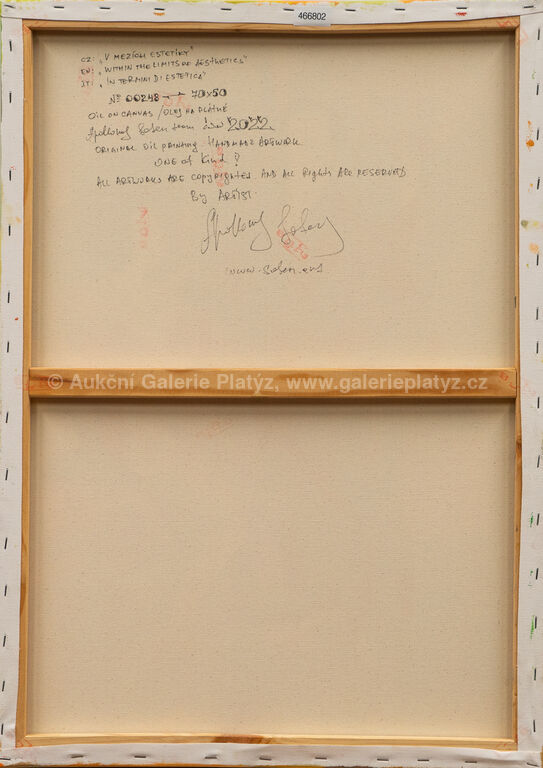 466802
CZ: "V MEZÍCH ESTETIKY"
EN: "WITHIN THE LIMITS OF AESTHETICS"
IT: "IN TERMINI DI ESTETICA"
Nº 00248 70x50
OIL ON CANVAS / OLEJ NA PLÁTNĚ
2022
ORIGINAL OIL PAINTING HANDMADE ARTWORK
ONE of Kind
ALL ARTWORKS ARE COPYRIGHTED AND ALL RIGHTS ARE RESERVED
By ARTIST.
© Aukční Galerie Platýz, www.galerieplatyz.cz